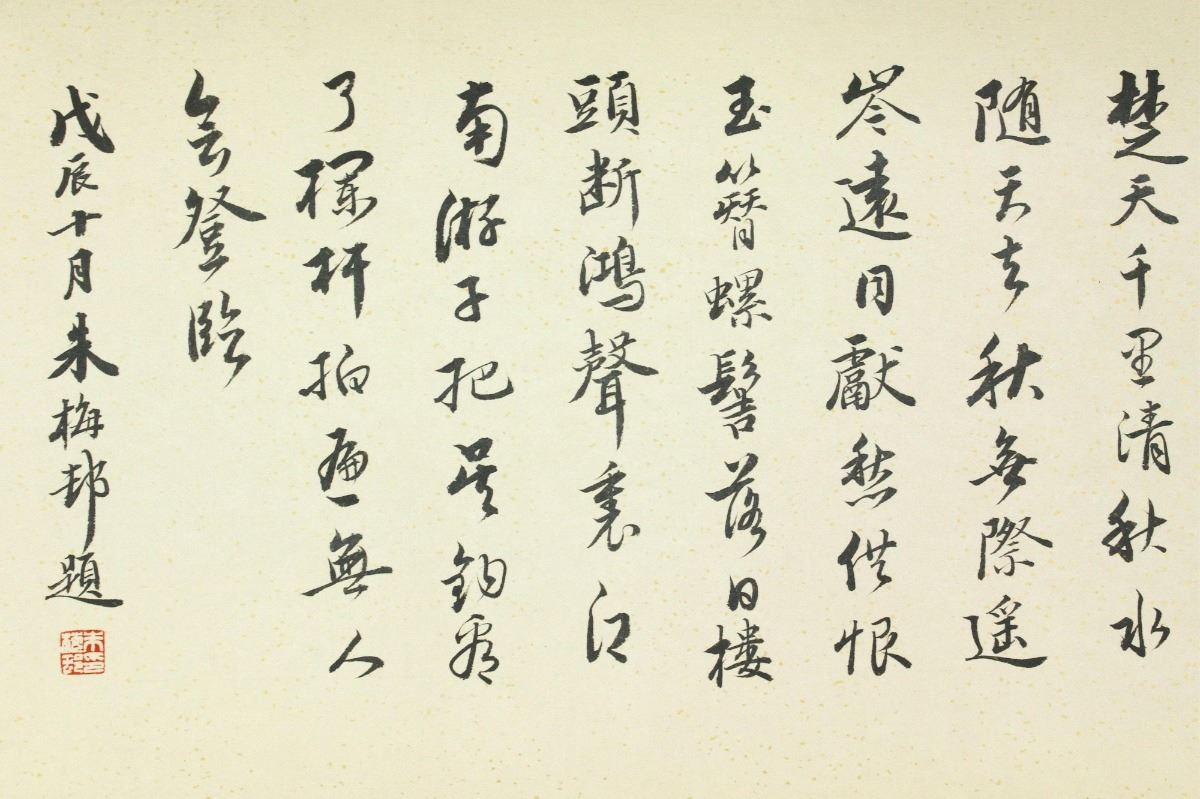 楚天千里清秋水
随天去秋無際遥
岑遠目獻愁供恨
玉簪螺髻落日樓
頭断鴻聲裏江
南游子把吴鈎看
了欄杆拍遍無人
会登臨
戊辰十月朱梅邨題
朱梅邨印